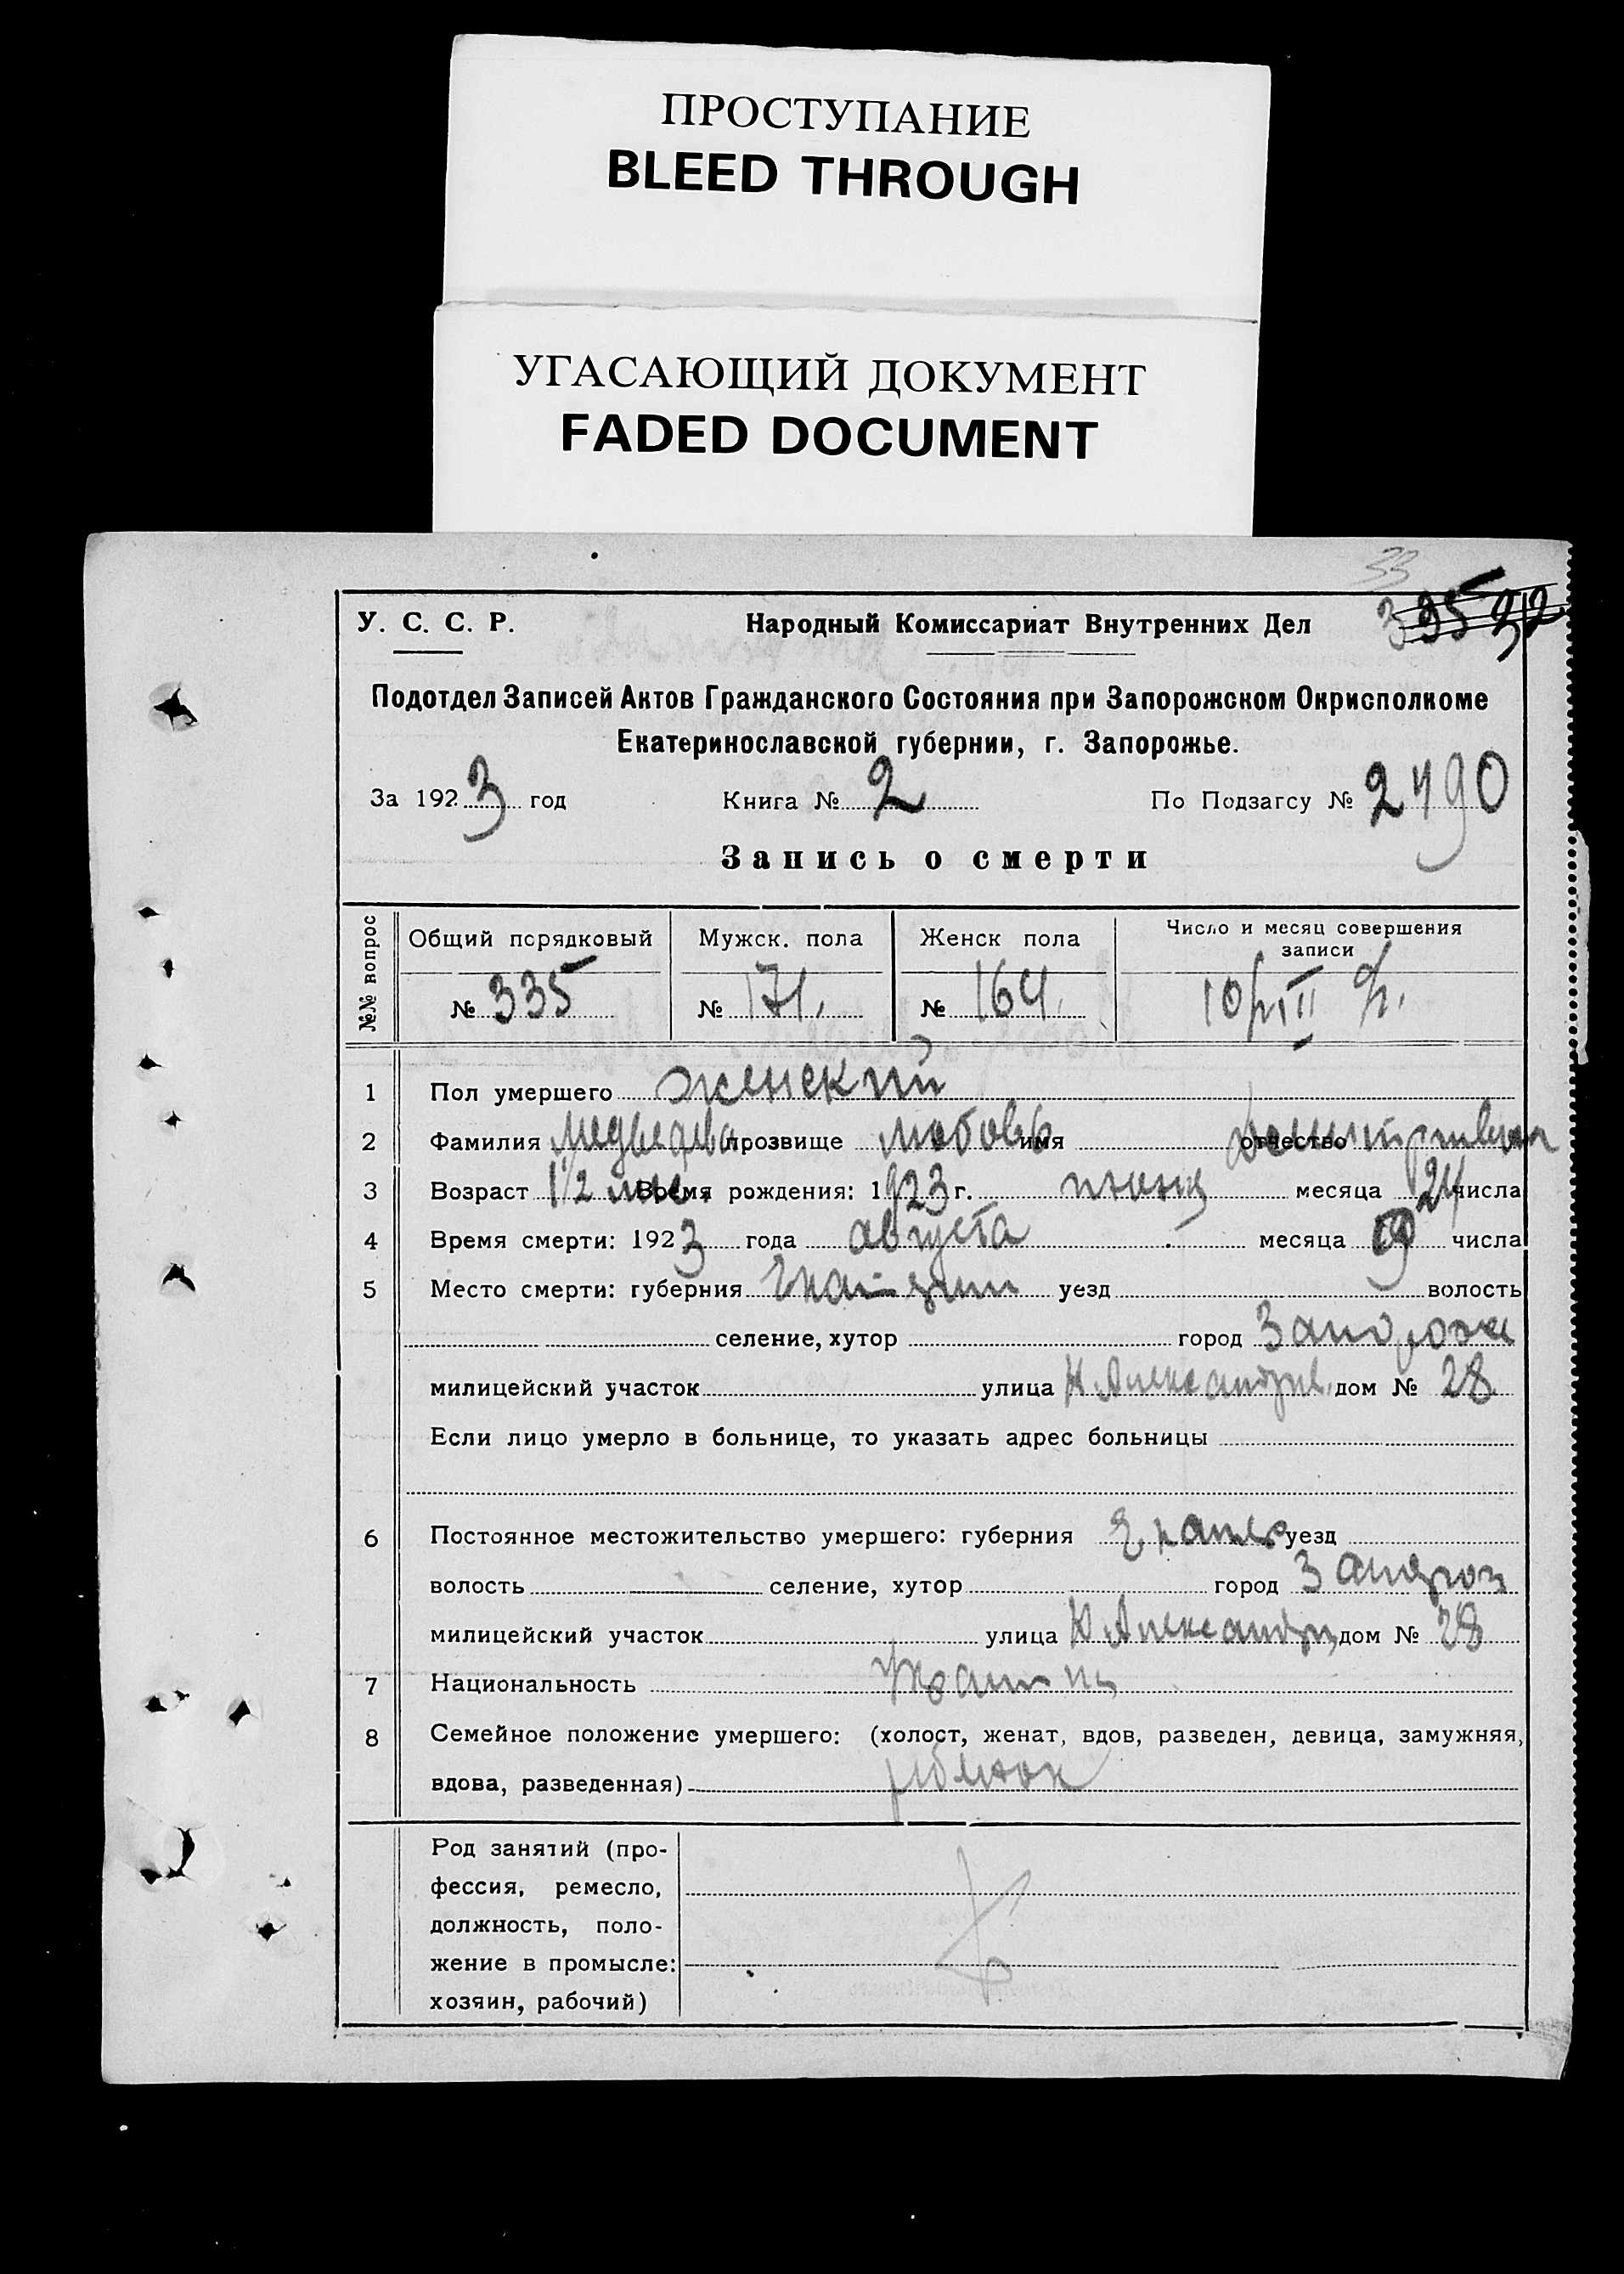 ПРОСТУПАНИЕ
BLEED THROUGH
УГАСАЮЩИЙ ДОКУМЕНТ
FADED DOCUMENT
33
335 32
У. С. С. Р. Народный Комиссариат Внутренних Дел
Подотдел Записей Актов Гражданского Состояния при Запорожском Окрисполкоме
Екатеринославской губернии, г. Запорожье.
За 1923 год Книга № 2 По Подзагсу № 2490
Запись о смерти
№№ вопрос Общий порядковый Мужск. пола Женск пола Число и месяц совершения
записи
№ 335 № 171. № 164.
1 Пол умершего женский
2 Фамилия Медведева прозвище Любовь имя отчество
3 Возраст 1 1/2 мес. Время рождения: 1923 г. июня месяца 24 числа
4 Время смерти: 1923 года августа месяца 9 числа
5 Место смерти: губерния уезд волость
селение, хутор город Запорож
милицейский участок улица Н Александров. дом № 28
Если лицо умерло в больнице, то указать адрес больницы
6 Постоянное местожительство умершего: губерния уезд
волость селение, хутор город Запорож
милицейский участок улица Н Александр дом № 28
7 Национальность
8 Семейное положение умершего: (холост, женат, вдов, разведен, девица, замужняя,
вдова, разведенная) ребенок
Род занятий (про-
фессия, ремесло,
должность, поло-
жение в промысле:
хозяин, рабочий)